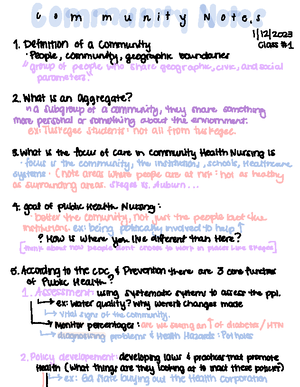 Community Notes
1/12/2023
Class #1
1. Definition of a Community
· People, community, geographic boundaries
· group of people who share geographic, civic, and social
parameters.
2. What is an Aggregate?
· a subgroup of a community, they share something
more personal or something about the environment.
ex: Tuskegee students: not all from tuskegee.
3. What is the focus of care in Community Health Nursing is
· focus is the community, the institutions, schools, Healthcare
systems · (note areas where people are at not as healthy
as surrounding areas.
4. goal of public Health Nursing:
· better the community, not just the people but the
institution. ex: being politically involved to help ↑
? How is where you live different than Here?
5. According to the CDC & Prevention there are 3 core functions
of Public Health?
1. Assessment: using systematic systems to assess the ppl.
→ ex: water quality? Why weren't changes made
→ vital signs of the community.
→ Monitor percentages: are we seeing an ↑ of diabetes/HTN
→ diagnosing problems & Health Hazards: Potholes
2. Policy development: developing laws & practices that promote
Health (What things are they looking at to make these policies)